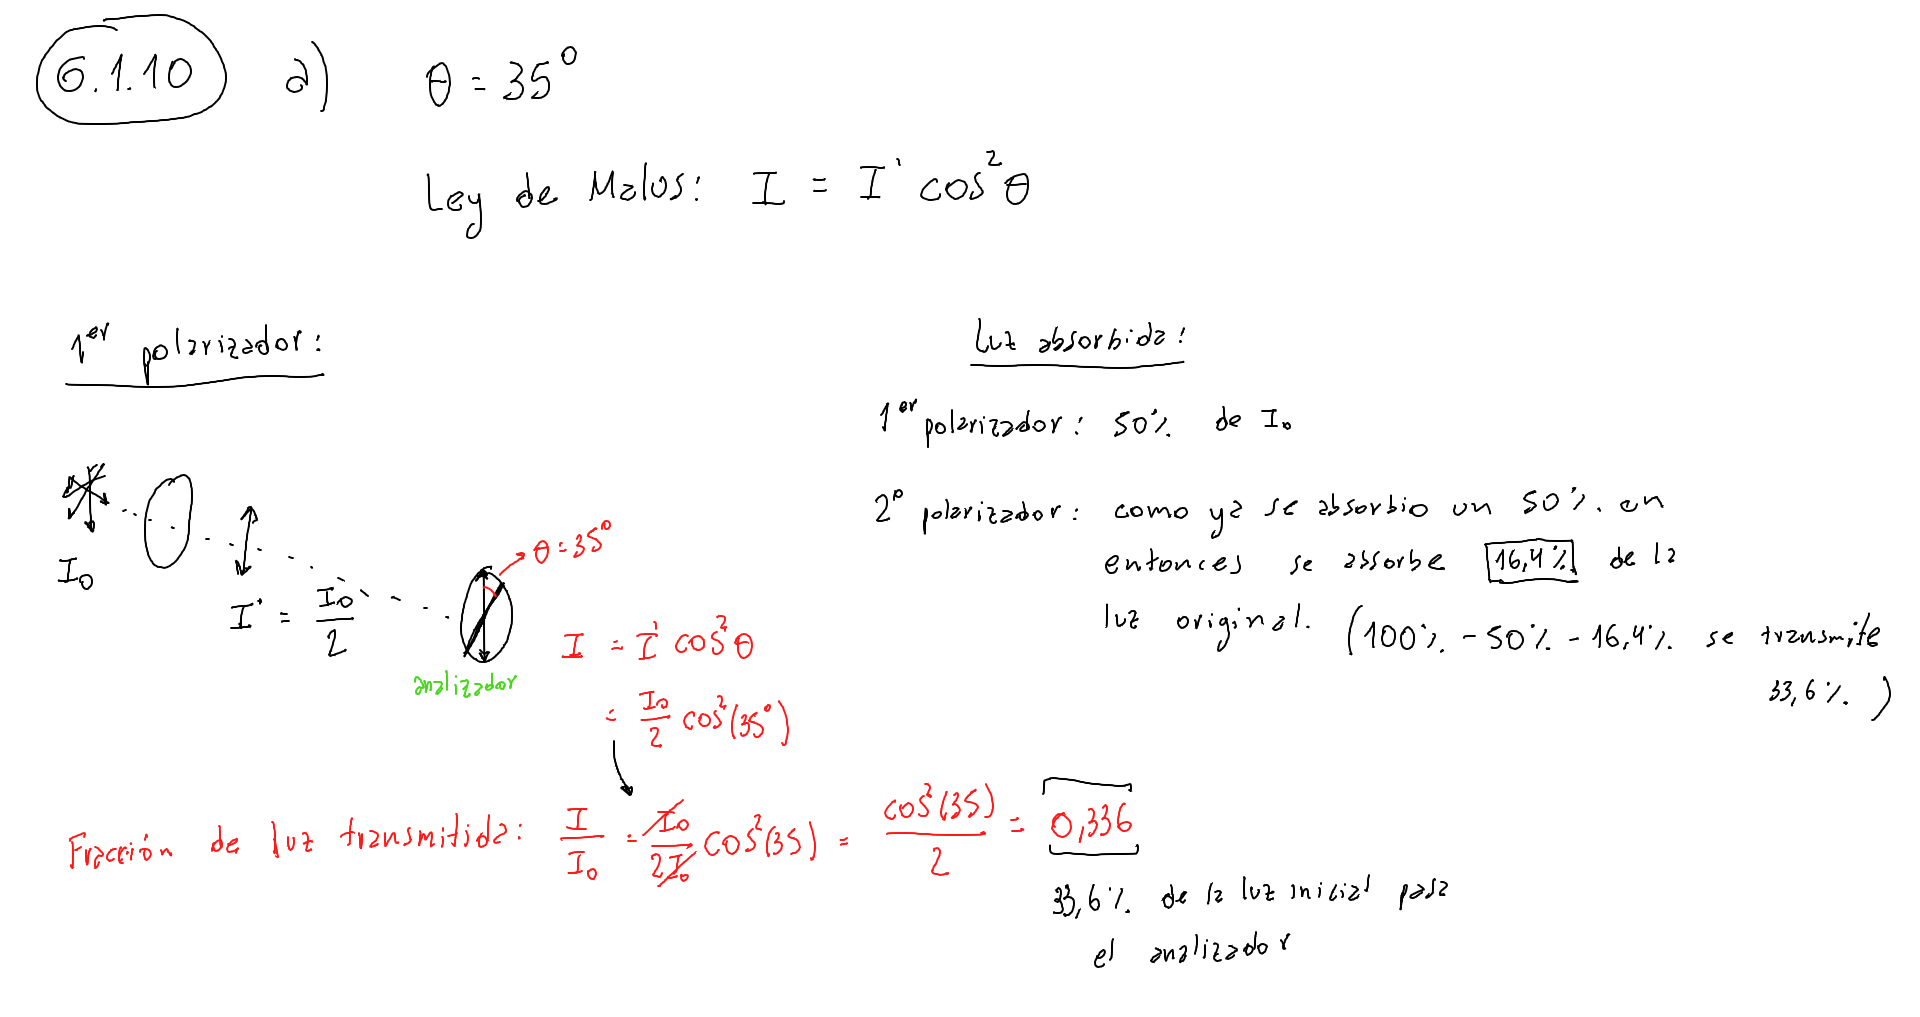 6.1.10 a) θ = 35°
Ley de Malus: I = I' cos²θ
1er polarizador:
I₀
I' = I₀/2
θ = 35°
analizador
I = I' cos²θ
= I₀/2 cos²(35°)
Fracción de luz transmitida: I/I₀ = I₀/2I₀ cos²(35) = cos²(35)/2 = 0,336
33,6%. de la luz inicial pasa
el analizador
Luz absorbida:
1er polarizador: 50% de I₀
2º polarizador: como ya se absorbio un 50%. en
entonces se absorbe 16,4% de la
luz original. (100% - 50% - 16,4% se transmite
33,6%.)